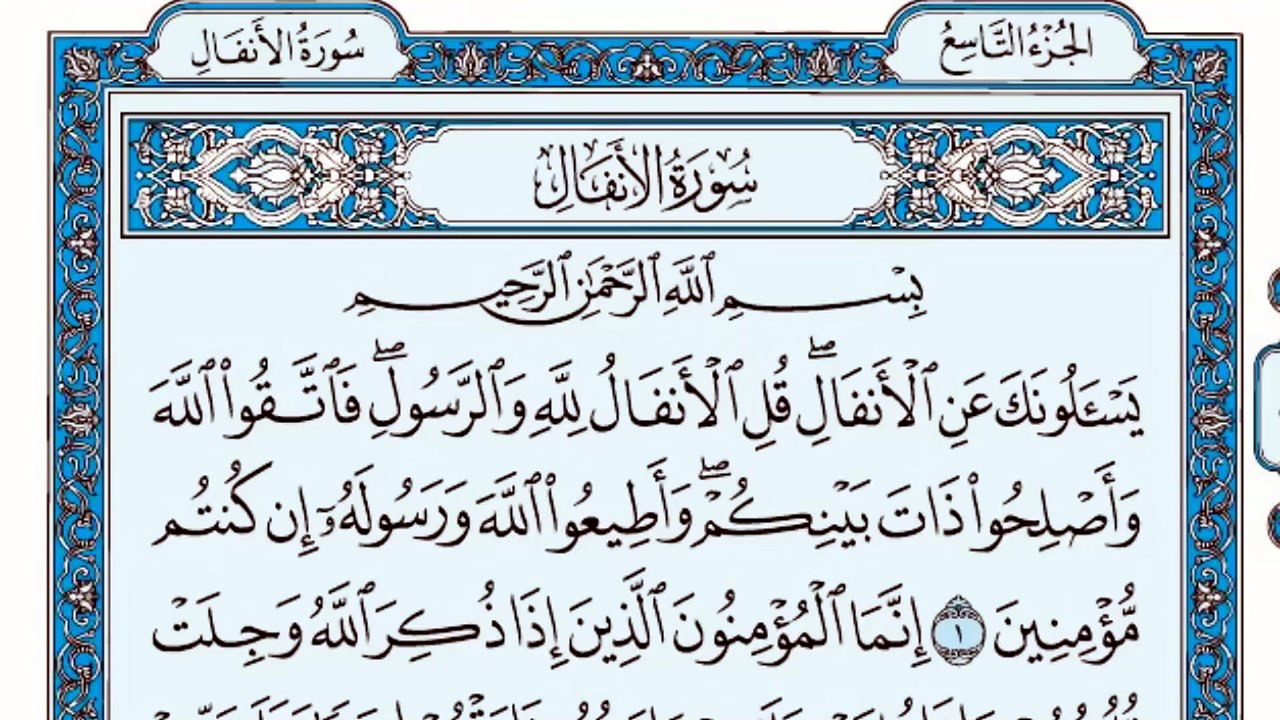 الجُزْءُ التَّاسِعُ
سُورَةُ الأَنفَالِ
سُورَةُ الأَنفَالِ
بِسْمِ ٱللَّهِ ٱلرَّحْمَٰنِ ٱلرَّحِيمِ
يَسْـَٔلُونَكَ عَنِ ٱلْأَنفَالِۖ قُلِ ٱلْأَنفَالُ لِلَّهِ وَٱلرَّسُولِۖ فَٱتَّقُوا۟ ٱللَّهَ
وَأَصْلِحُوا۟ ذَاتَ بَيْنِكُمْۖ وَأَطِيعُوا۟ ٱللَّهَ وَرَسُولَهُۥٓ إِن كُنتُم
مُّؤْمِنِينَ ١ إِنَّمَا ٱلْمُؤْمِنُونَ ٱلَّذِينَ إِذَا ذُكِرَ ٱللَّهُ وَجِلَتْ